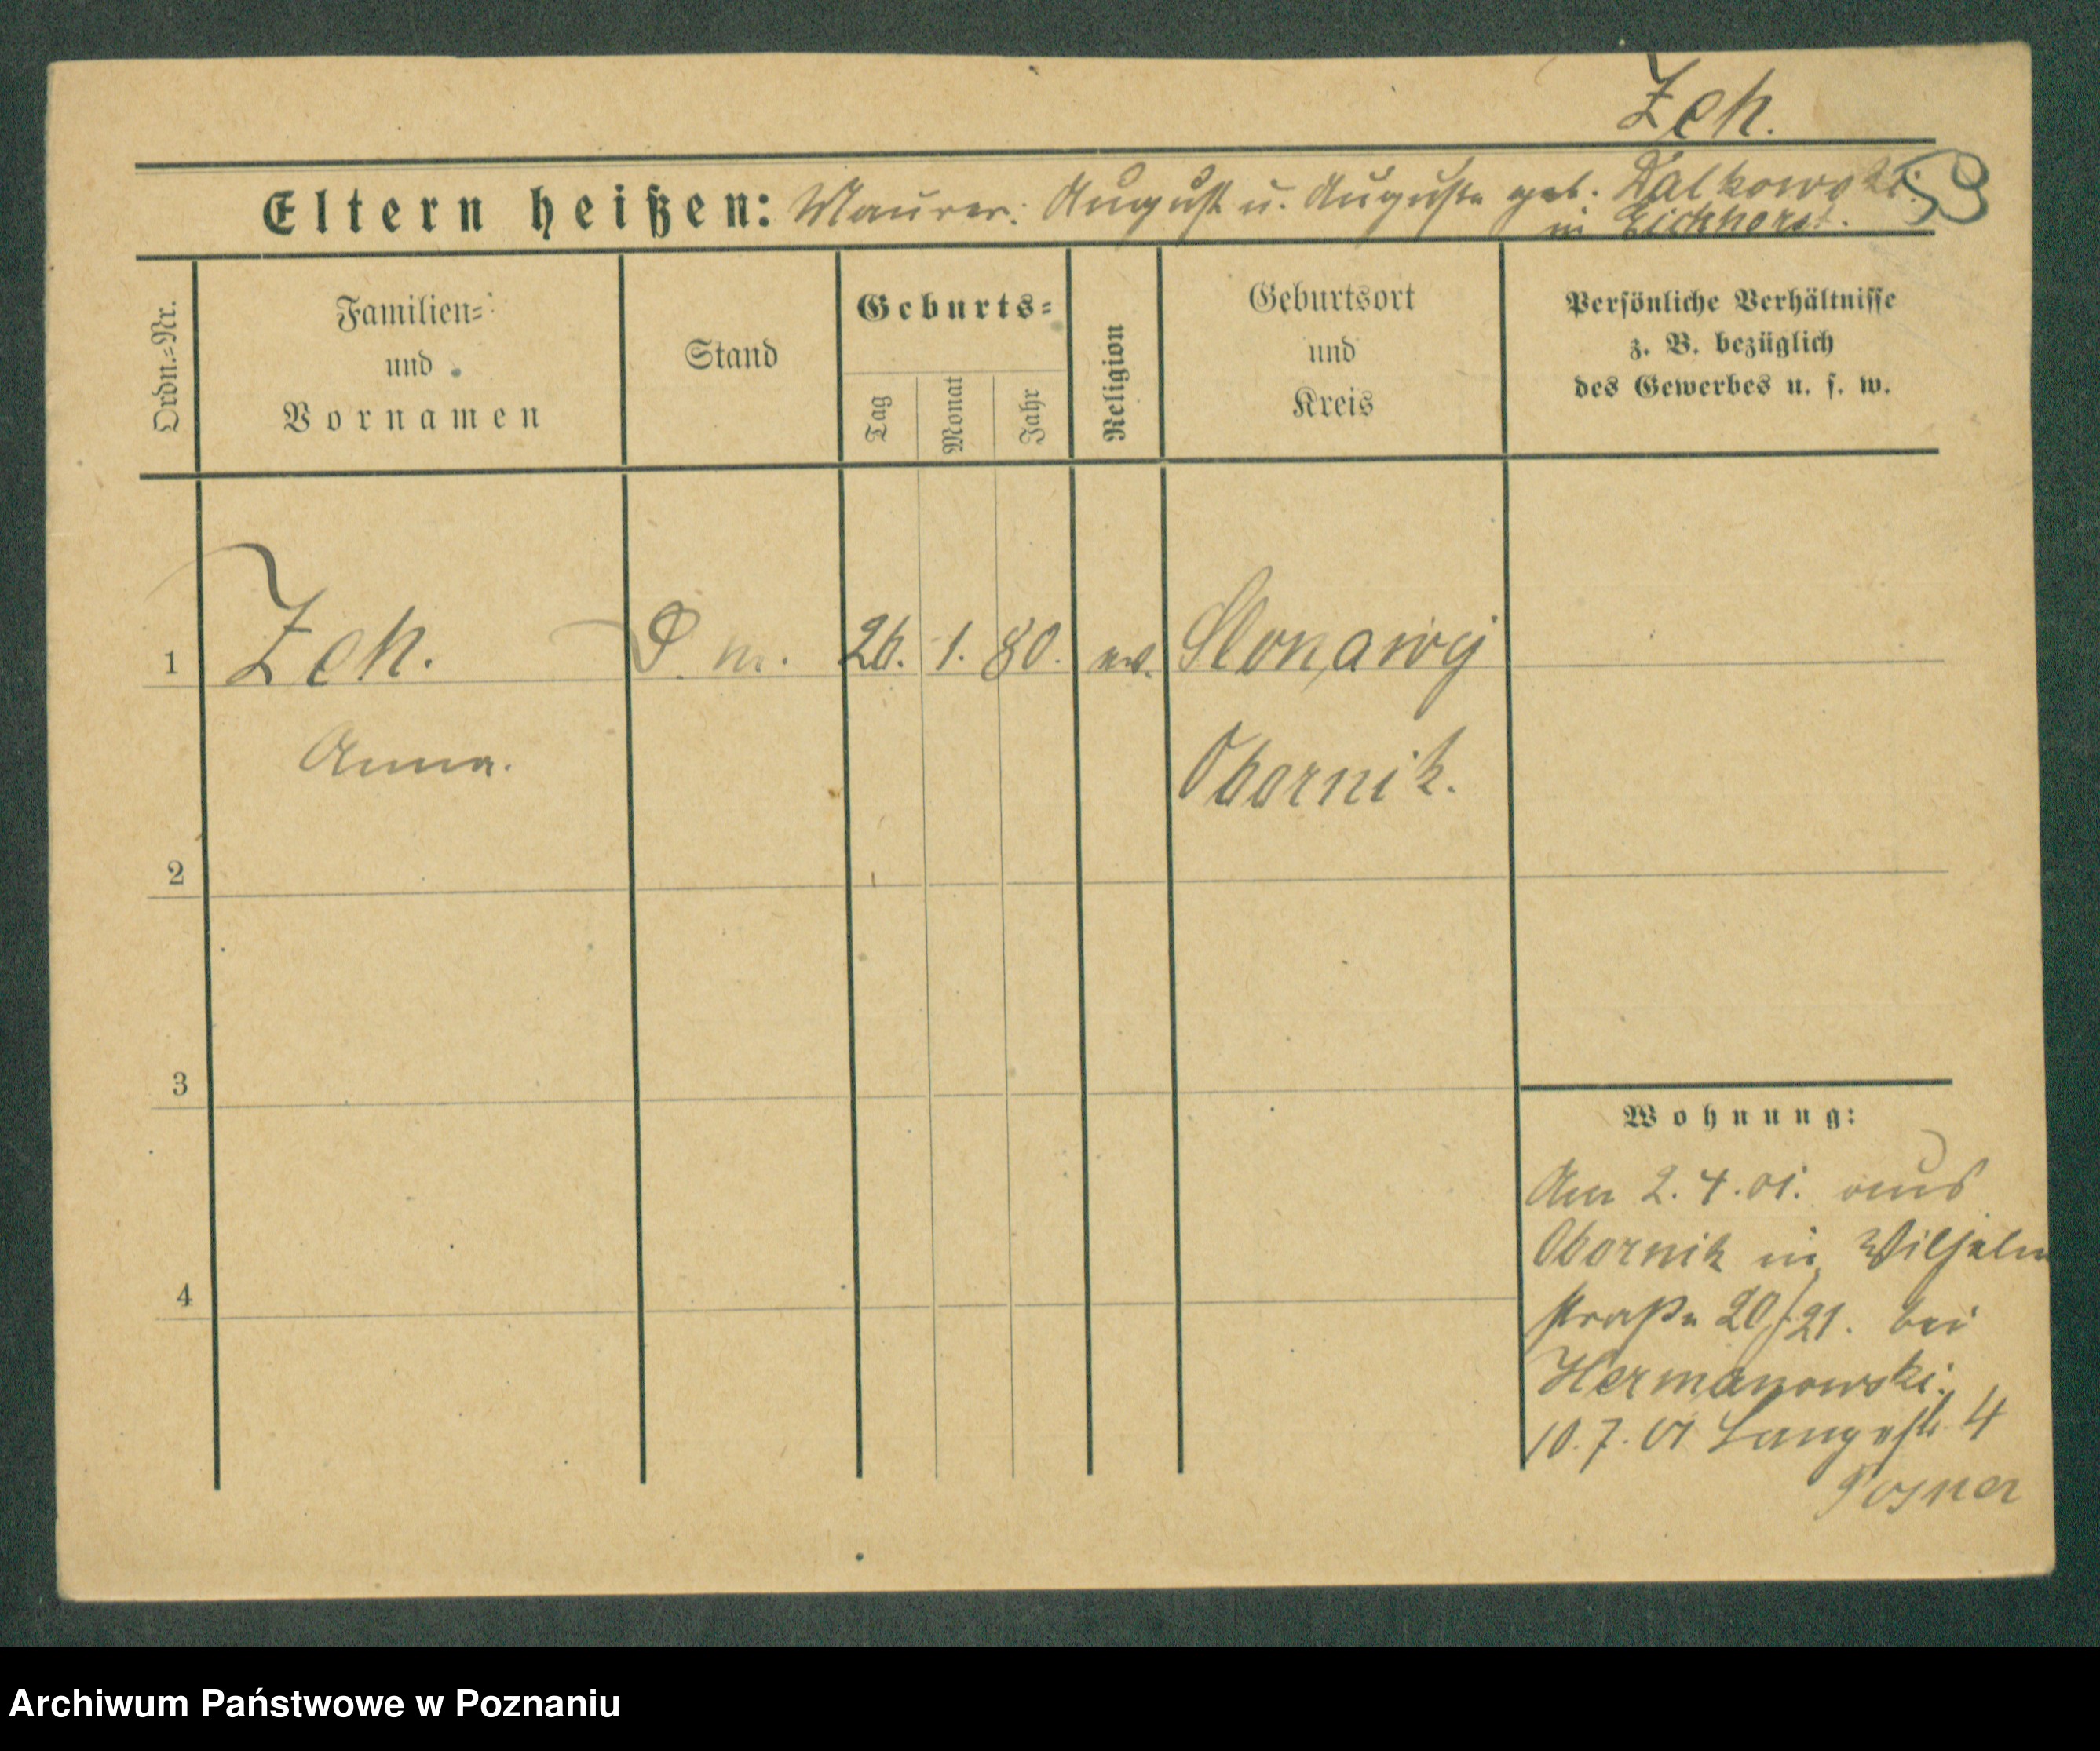 Zeh.
Eltern heißen: Maurer: August u. Auguste geb. Dalkowski.
in Eichhorst.
59
Ordn.=Nr.
Familien=
und
Vornamen
Stand
Geburts=
Tag
Monat
Jahr
Religion
Geburtsort
und
Kreis
Persönliche Verhältnisse
z. B. bezüglich
des Gewerbes u. s. w.
1 Zeh. D. m. 26. 1. 80. ev. Slonawy
Anna. Obornik.
2
3
4
Wohnung:
Am 2. 4. 01. aus
Obornik in Wilhelm
straße 20/21. bei
Hermanowski.
10. 7. 01 Langestr. 4
Posner
Archiwum Państwowe w Poznaniu